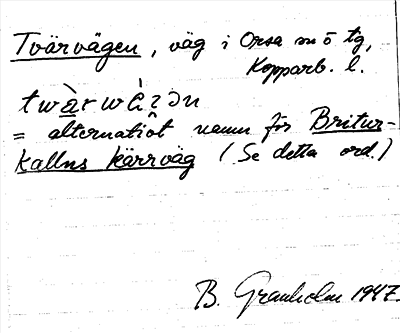 Tvärvägen, väg i Orsa snö tg,
Kopparb. l.
twàrwè̀ɜən
= alternatiôt namn för Britur-
Kallns kärrväg (Se detta ord.)
B. Granholm 1947.